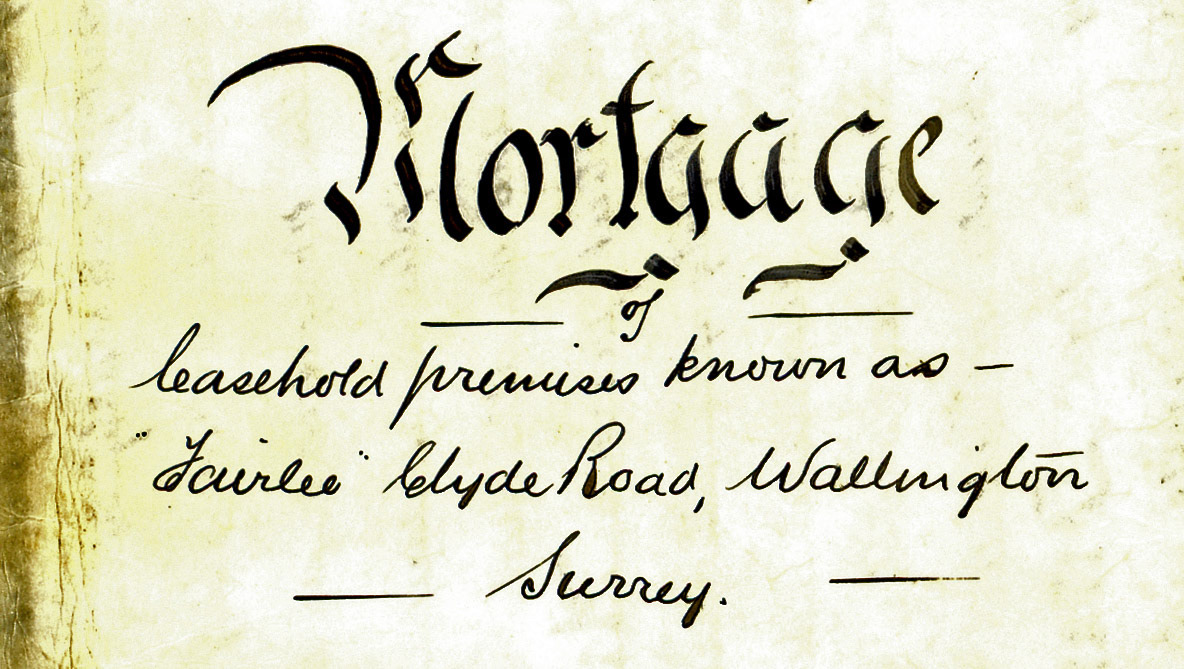 Mortgage
of
leasehold premises known as —
"Fairlee" Clyde Road, Wallington
Surrey.